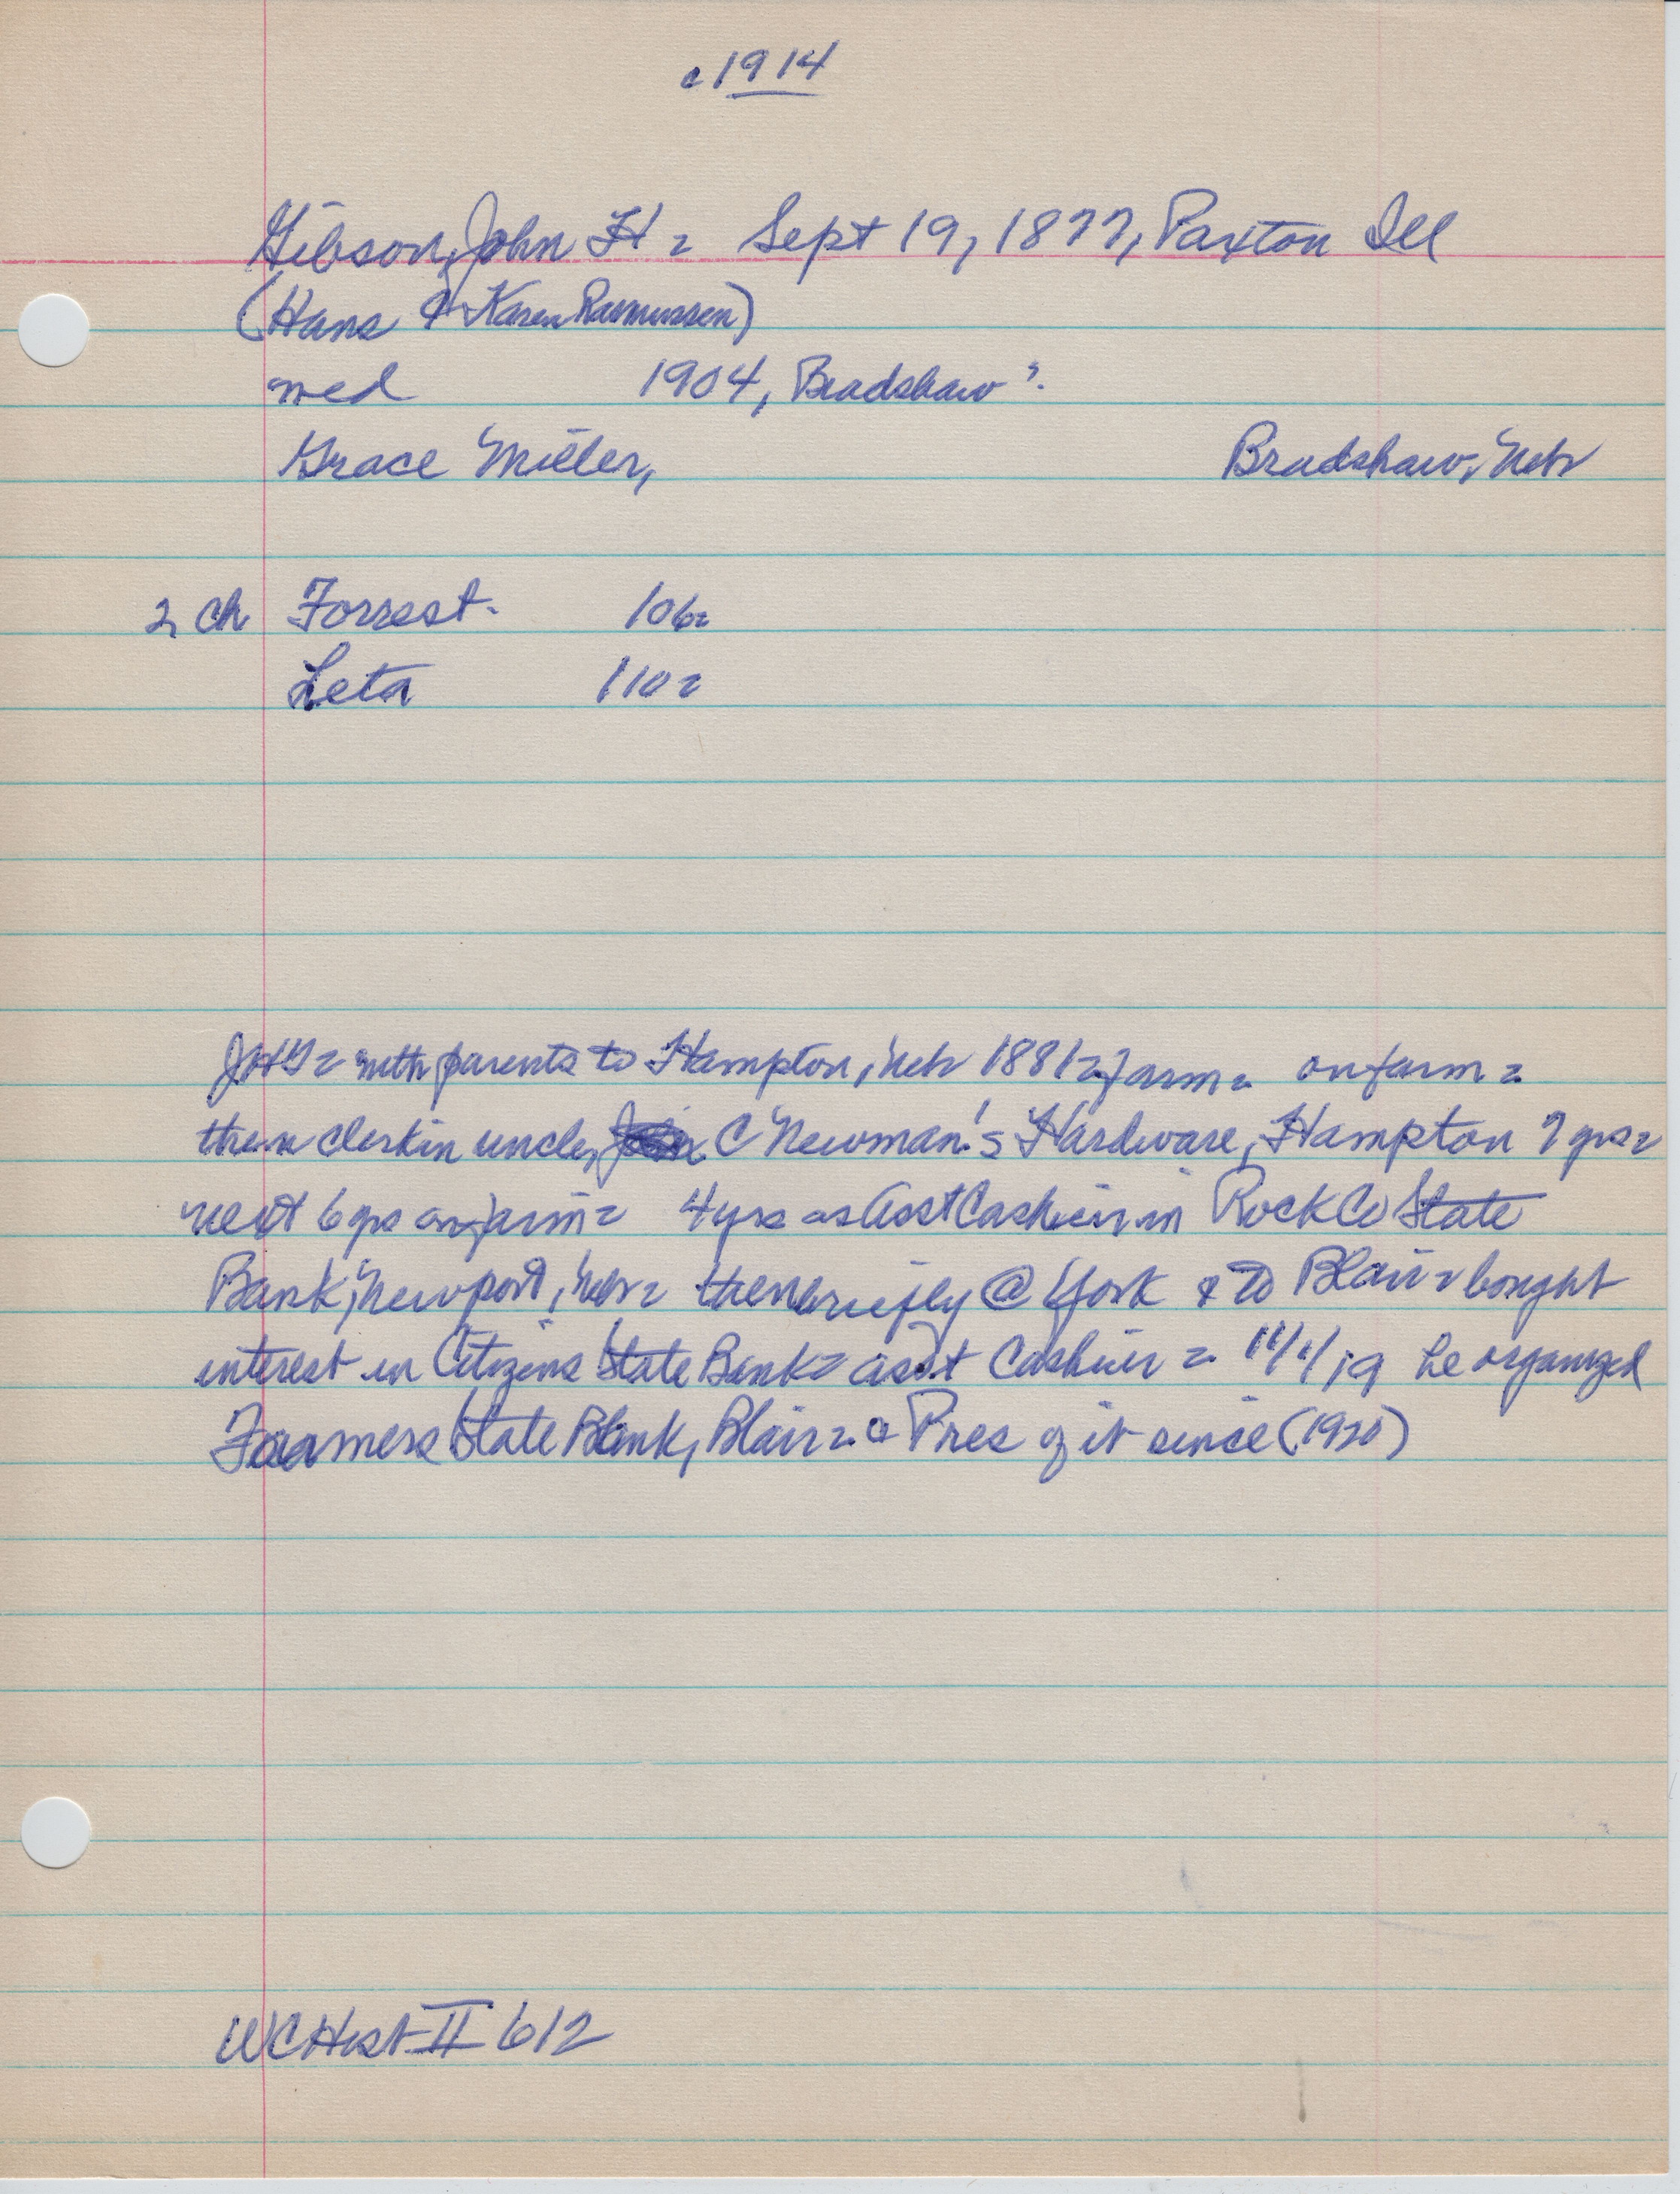 c 1914
Gibson, John H = Sept 19, 1877, Paxton Ill
(Hans & Karen Rasmussen)
med 1904, Bradshaw ?
Grace Miller, Bradshaw, Nebr
2 ch Forrest - 106=
Leta 110=
JHG = with parents to Hampton, Nebr 1881 = farm = on farm =
then clerk in uncle, C Newman's Hardware, Hampton 7 yrs =
next 6 yrs on farm = 4 yrs as Asst Cashier in Rock Co State
Bank, Newport, Nebr = then briefly @ York & to Blair = bought
interest in Citizens State Bank = asst Cashier = 11/1/19 he organized
Farmers State Bank, Blair = Pres of it since (1920)
WC Hist II 612